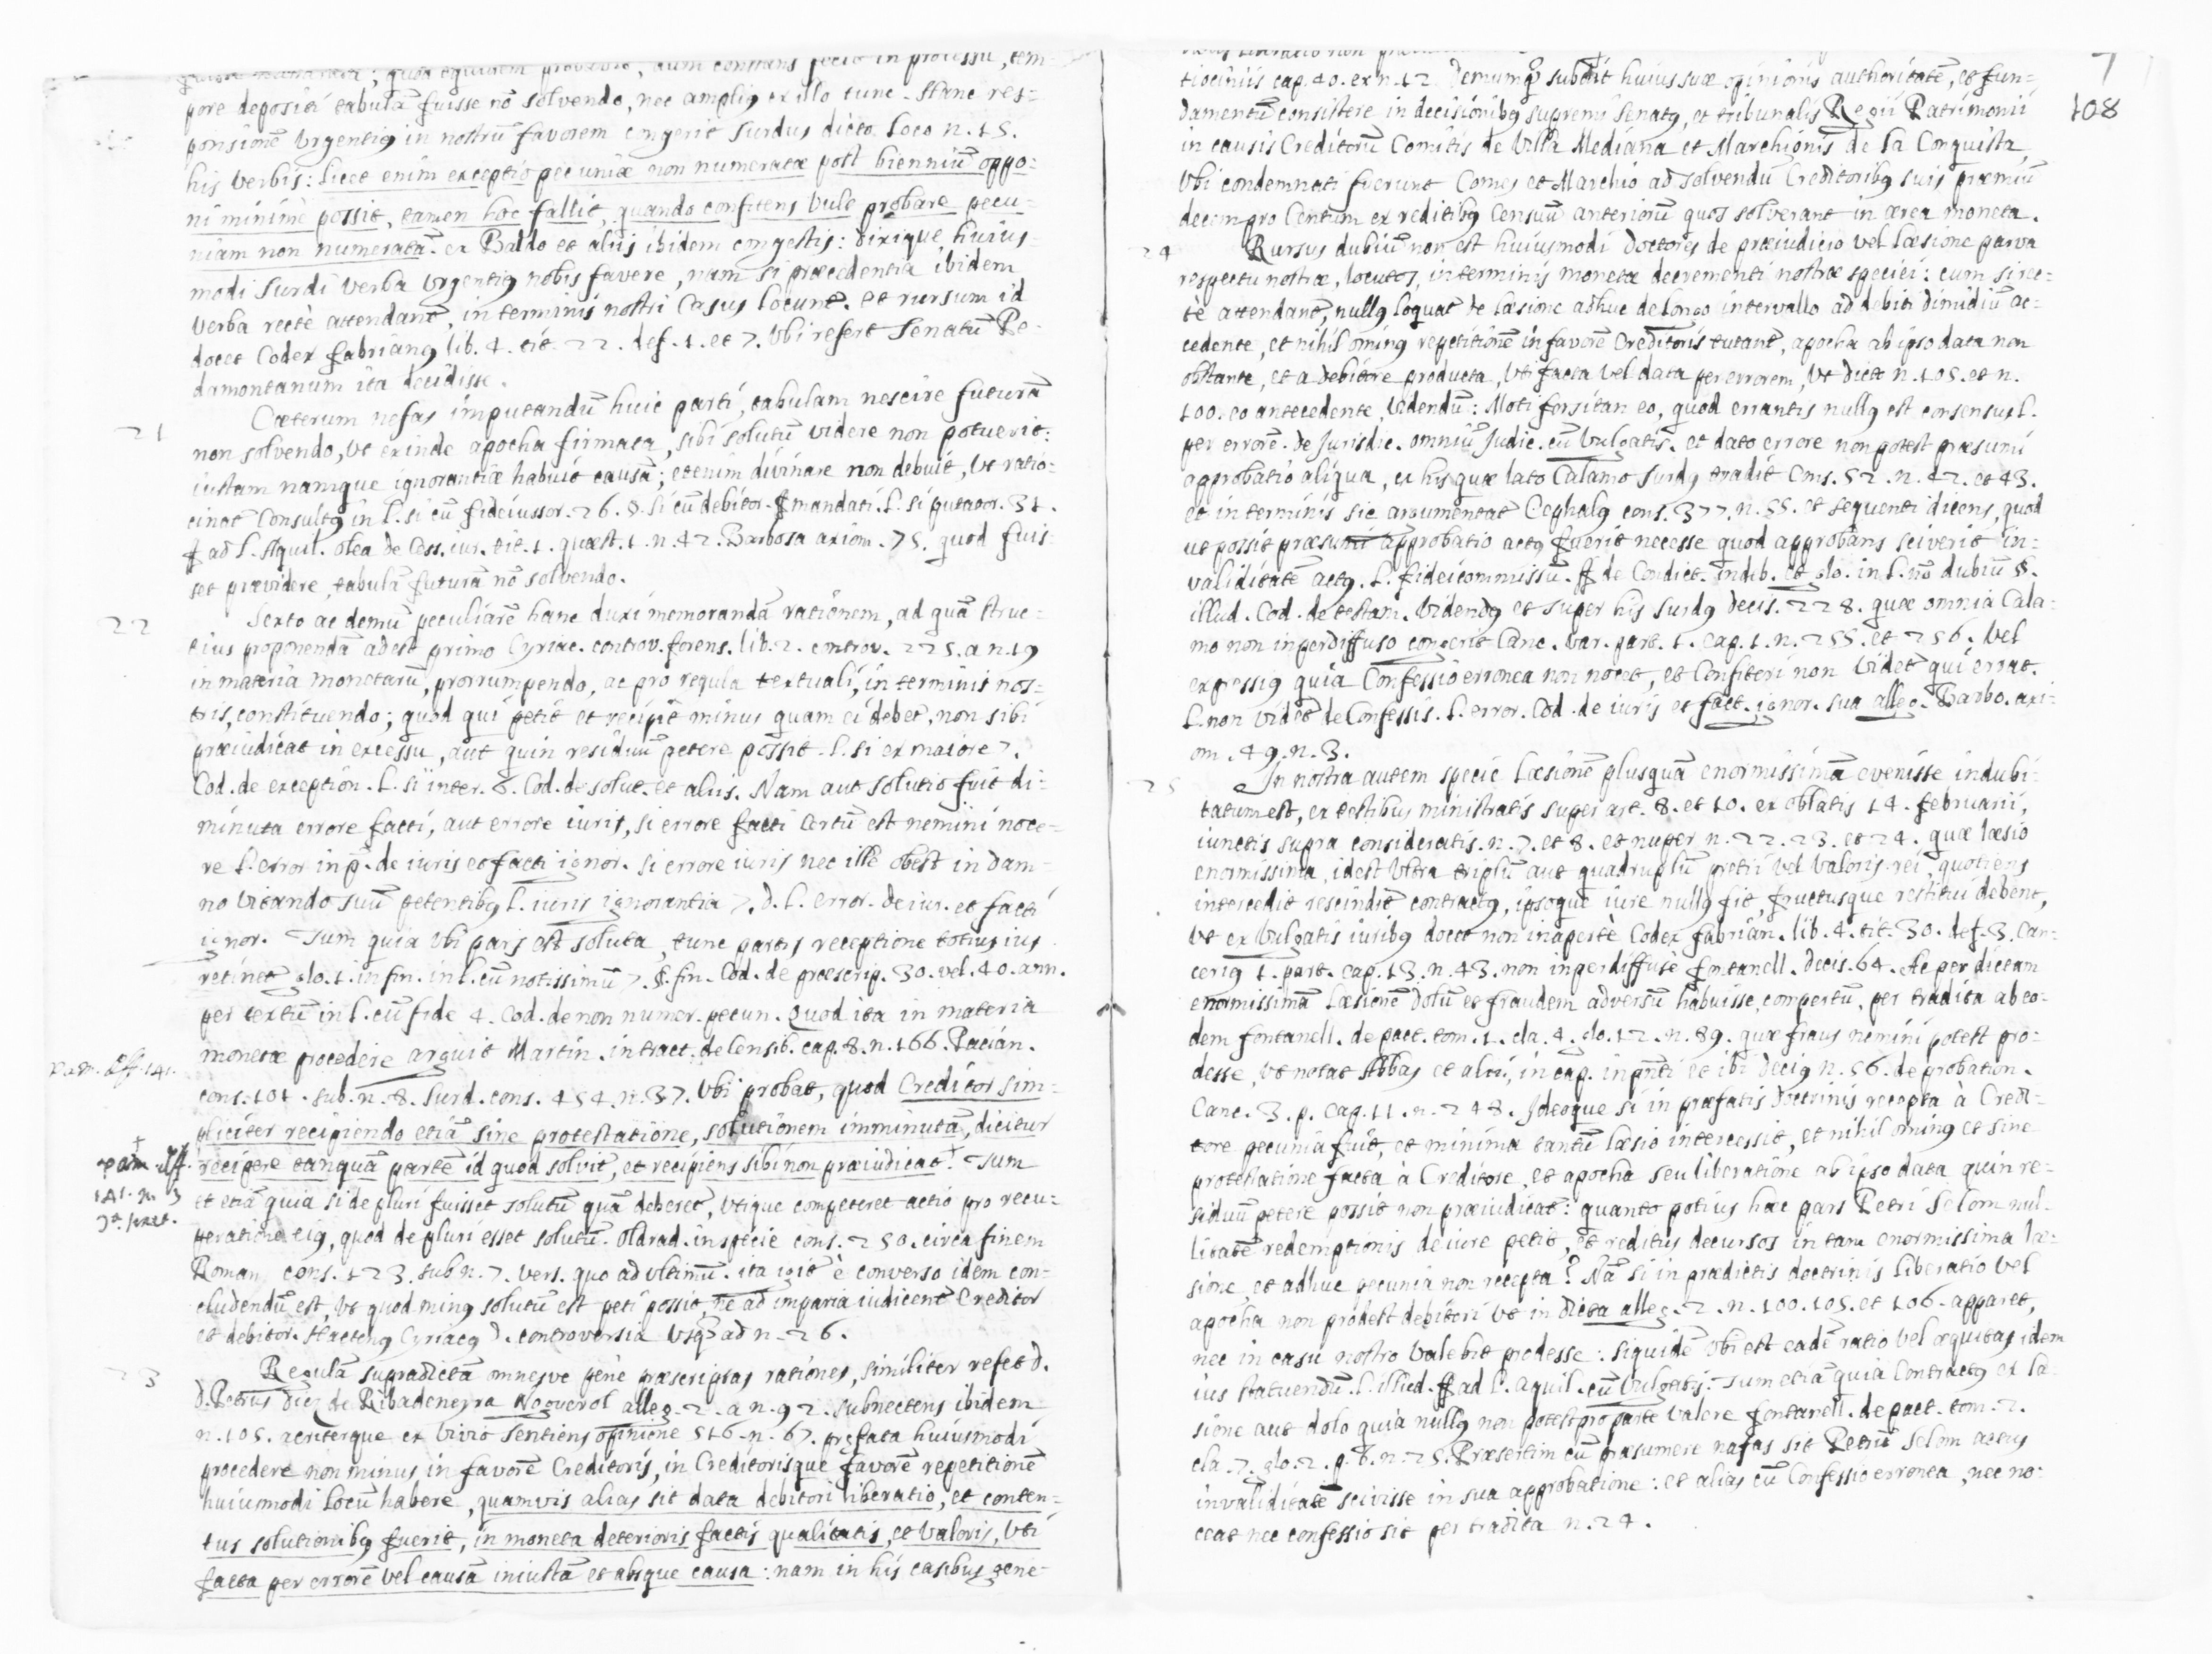 pore depositi tabulã fuisse nõ solvendo, nec amplius ex illo tunc. Hanc res=
ponsionẽ Urgentiq in nostrũ favorem congerit Surdus dicto loco n. 15.
his verbis: licet enim exceptio pecuniæ non numeratæ post bienniũ oppo=
ni minimè possit, tamen hoc fallit, quando confitens vult probare pecu=
niam non numeratã. ex Baldo et aliis ibidem congestis: dixique huius=
modi Surdi verba urgentiq nobis favere, nam si præcedentia ibidem
verba rectè attendant, in terminis nostri Casus locunt. et rursum id
docet Codex fabrianq lib. 4. tit. 22. def. 1. et 7. Ubi refert Senatũ Pe=
damontanum ita decidisse.
21 Cæterum nefas imputandũ huic parti, tabulam nescire futurã
non solvendo, ut exinde apocha firmata, sibi solutũ videre non potuerit:
iustam namque ignorantiæ habuit causã; etenim divinare non debuit, ut ratio=
cinat Consultq in l. si cũ fideiussor. 26. §. si cũ debitor. ff mandati. l. si putator. 31.
ff ad l. Aquil. olea de Cess. iur. tit. 1. quæst. 1. n. 42. Barbosa axiom. 75. quod fuis=
set prævidere, tabulã futurã nõ solvendo.
22 Sexto ac demũ peculiarẽ hanc duxi memorandã rationem, ad quã struc=
tius proponendã adest primo Cyriac. controv. forens. lib. 2. controv. 225. a n. 19
in materia monetarũ, prorrumpendo, ac pro regula textuali, in terminis nos=
tris, constituendo; quod qui petit et recipit minus quam ei debet, non sibi
præiudicat in excessu, aut quin residuũ petere possit. l. si ex maiore 7.
Cod. de exception. l. si inter. 8. Cod. de solut. et aliis. Nam aut solutio fuit di=
minuta errore facti, aut errore iuris, si errore facti certũ est nemini noce=
re l. error in p. de iuris et facti ignor. si errore iuris nec ille obest in dam=
no vitando suũ petentibq l. iuris ignorantia 7. d. l. error. de iur. et facti
ignor. Tum quia ubi pars est soluta, tunc partis receptione totius ius
retinet glo. 1. in fin. in l. cũ notissimũ 7. §. fin. Cod. de præscrip. 30. vel. 40. ann.
per textũ in l. cũ fide 4. Cod. de non numer. pecun. Quod ita in materia
monetæ procedere arguit Martin. in tract. de Censib. cap. 8. n. 166. Pacian.
cons. 101. sub. n. 8. Surd. cons. 454. n. 37. Ubi probat, quod Creditor sim=
pliciter recipiendo etiã sine protestatione, solutionem imminutã, dicitur
recipere tanquã partẽ id quod solvit, et recipiens sibi non præiudicat. Tum
et etiã quia si de pluri fuisset solutũ quã deberet, utique competeret actio pro recu=
peratione eiq, quod de pluri esset solutũ. Oldrad. in specie cons. 250. circa finem
Roman. cons. 123. sub n. 7. vers. quo ad ultimũ. ita igit è converso idem con=
cludendũ est, ut quod minq solutũ est peti possit, ne ad imparia iudicent Creditor
et debitor. Hactenq Cyriacq d. controversia usq ad n. 26.
23 Regulã supradictã omnesve penè præscriptas rationes, similiter refert d.
D. Petrus Diez de Ribadeneyra Noguerol alleg. 2. a n. 92. subnectens ibidem
n. 105. acriterque ex Vivio sentiens opinione 516. n. 67. præfata huiusmodi
procedere non minus in favorẽ Creditoris, in Creditorisque favorẽ repetitionẽ
huiusmodi locũ habere, quamvis alias sit data debitori liberatio, et conten=
tus solutionibq fuerit, in moneta deterioris factis qualitatis, et valoris, uti
facta per errorẽ vel causã iniustã et absque causa: nam in his casibus gene=
pam. all. 141.
141. n. 3
7
108
tiociniis cap. 40. ex n. 12. Demumq subdit huius suæ opinionis authoritatẽ, et fun=
damentũ consistere in decisionibq supremi Senatq, et tribunalis Regii Patrimonii
in causis Creditorũ Comitis de Villa Mediana et Marchionis de la Conquista,
Ubi condemnati fuerunt Comes et Marchio ad solvendũ Creditoribq suis præmiũ
decem pro Centum ex reditibq Censuũ anteriorũ quos solverant in ærea moneta.
24 Rursus dubiũ non est huiusmodi Doctores de præiudicio vel læsione parva
respectu nostræ, locutos, in terminis monetæ decrementi nostræ speciei: cum si rec=
tè attendant, nullq loquat de læsione adhuc de longo intervallo ad debiti dimidiũ ac=
cedente, et nihil ominq repetitionẽ in favorẽ Creditoris tutant, apocha ab ipso data non
obstante, et a debitore producta, uti facta vel data per errorem, ut dict. n. 105. et n.
100. eo antecedente, videndũ: Moti forsitan eo, quod errantis nullq est consensus l.
per errorẽ. de Jurisdic. omniũ Judic. cũ vulgatis. et dato errore non potest præsumi
approbatio aliqua, ex his quæ lato Calamo Surdq tradit Cons. 52. n. 42. et 43.
et in terminis sic argumentat Cephalq cons. 377. n. 55. et sequenti dicens, quod
ut possit præsumi approbatio actq fuerit necesse quod approbans sciverit in=
validitatẽ actq. l. fideicommissũ. ff de Condict. indeb. et glo. in l. nõ dubiũ §.
illud. Cod. de testam. Videndq et super his Surdq decis. 228. quæ omnia Cala=
mo non in perdiffuso congerit Canc. Var. part. 1. Cap. 1. n. 255. et 256. Vel
expressiq quia Confessio erronea non nocet, et Confiteri non videt qui errat.
l. non videt de Confessis. l. error. Cod. de iuris et fact. ignor. sua alleg. Barbo. axi=
om. 49. n. 3.
25 In nostra autem specie læsionẽ plusquã enormissimã evenisse indubi=
tatum est, ex testibus ministratis super art. 8. et 10. ex oblatis 14. februarii,
iunctis supra consideratis. n. 7. et 8. et nuper n. 22. 23. et 24. quæ læsio
enormissima, idest ultra triplũ aut quadruplũ pretii vel valoris rei, quotiens
intercedit rescindit contractq, ipsoque iure nullq fit, fructusque restitui debent,
ut ex vulgatis iuribq docet non inapertè Codex fabrian. lib. 4. tit. 30. def. 3. Can=
ceriq 1. part. cap. 13. n. 43. non in perdiffusè fontanell. decis. 64. Ac per dictam
enormissimã læsionẽ dolũ et fraudem adversũ habuisse, compertũ, per tradita ab eo=
dem fontanell. de pact. tom. 1. cla. 4. glo. 12. n. 89. quæ fraus nemini potest pro=
desse, ut notat Abbas et alii, in cap. in pñti et ibi Deciq n. 56. de probation.
Canc. 3. p. cap. 11. n. 248. Ideoque si in præfatis Doctrinis recepta à Credi=
tore pecunia fuit, et minima tantũ læsio intercessit, et nihil ominq et sine
protestatione facta à Creditore, et apocha seu liberatione ab ipso data quin re=
siduũ petere possit non præiudicat: quanto potius hæc pars Petri Selom nul=
litatẽ redemptionis de iure petit, et reditus decursos in tam enormissima læ=
sione, et adhuc pecunia non recepta? Nã si in prædictis doctrinis liberatio vel
apocha non prodest debitori ut in dicta alleg. 2. n. 100. 105. et 106. apparet,
nec in casu nostro valebit prodesse: siquidẽ ubi est eadẽ ratio vel æquitas idem
ius statuendũ. l. illud. ff ad l. aquil. cũ vulgatis. Tum etiã quia Contractq ex læ=
sione aut dolo quia nullq non potest pro parte valere fontanell. de pact. tom. 2.
cla. 7. glo. 2. p. 8. n. 25. Præsertim cũ præsumere nafas sit Petrũ Selom actus
invaliditatẽ scivisse in sua approbatione: et alias cũ Confessio erronea, nec no=
ceat nec confessio sit per tradita n. 24.